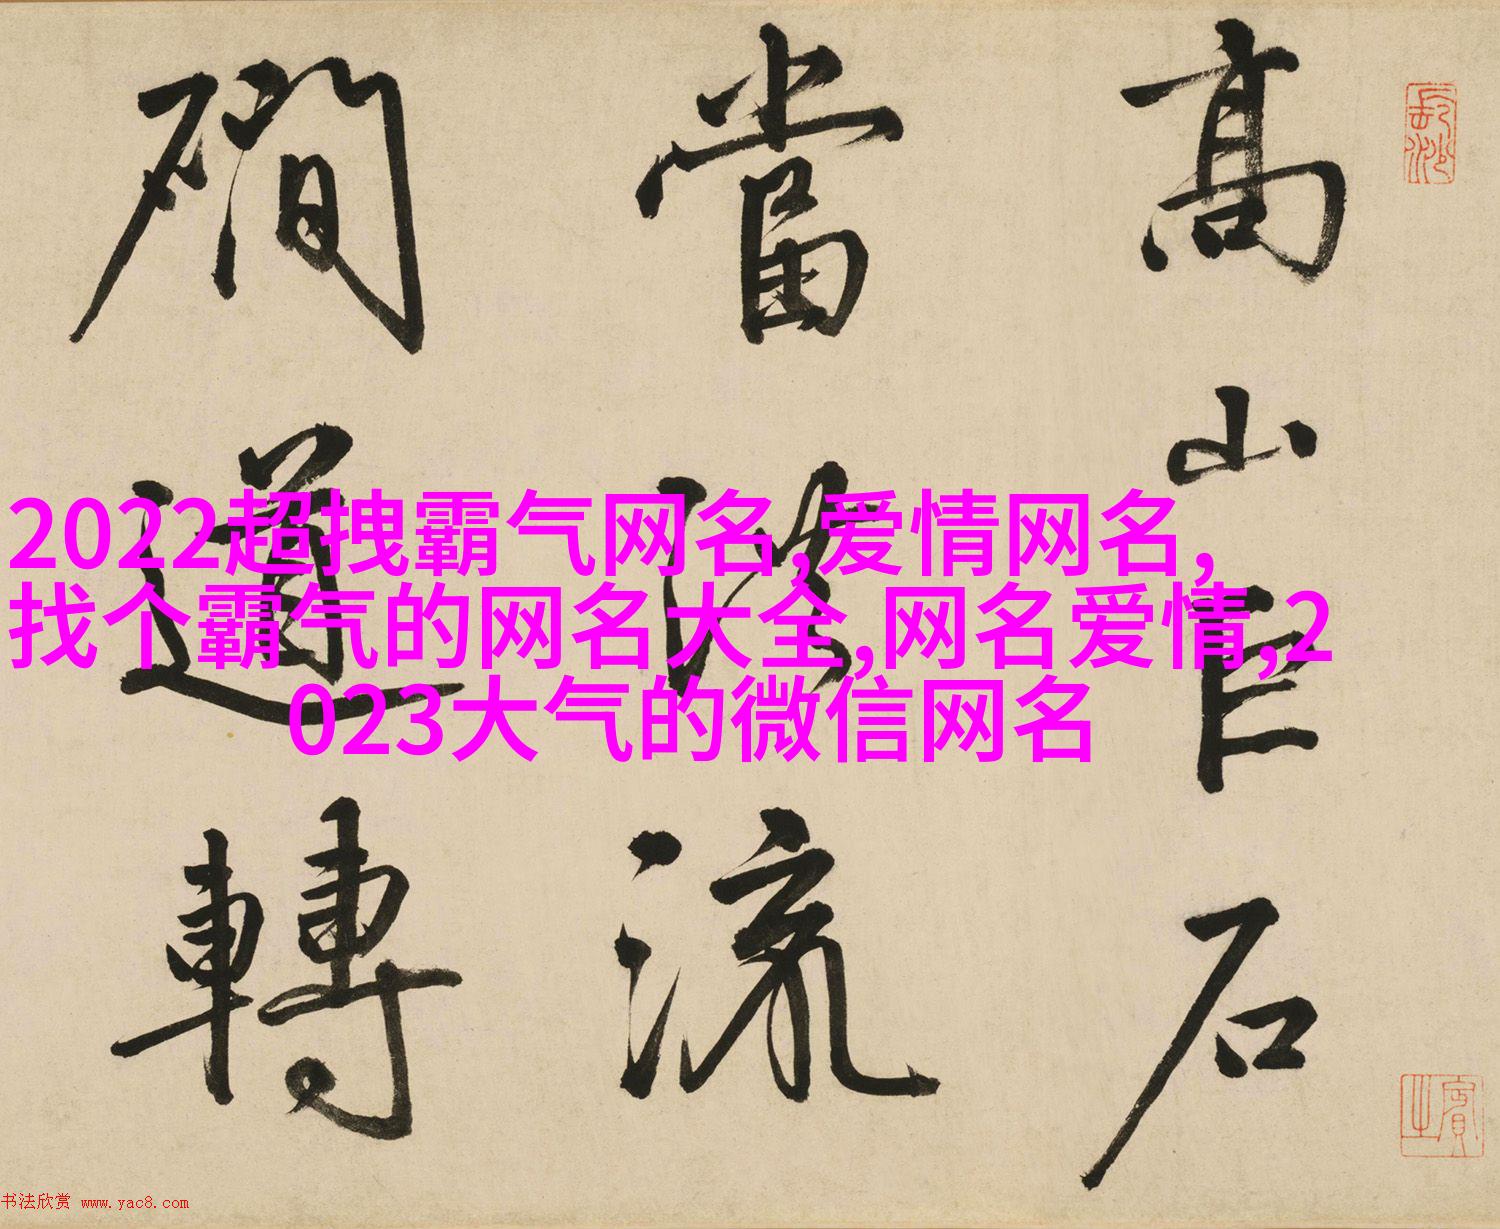 高山巨石
當流
磵道轉
長沙
賓之
2022超拽霸气网名,爱情网名,
找个霸气的网名大全,网名爱情,2
023大气的微信网名
书法欣赏 www.yac8.com